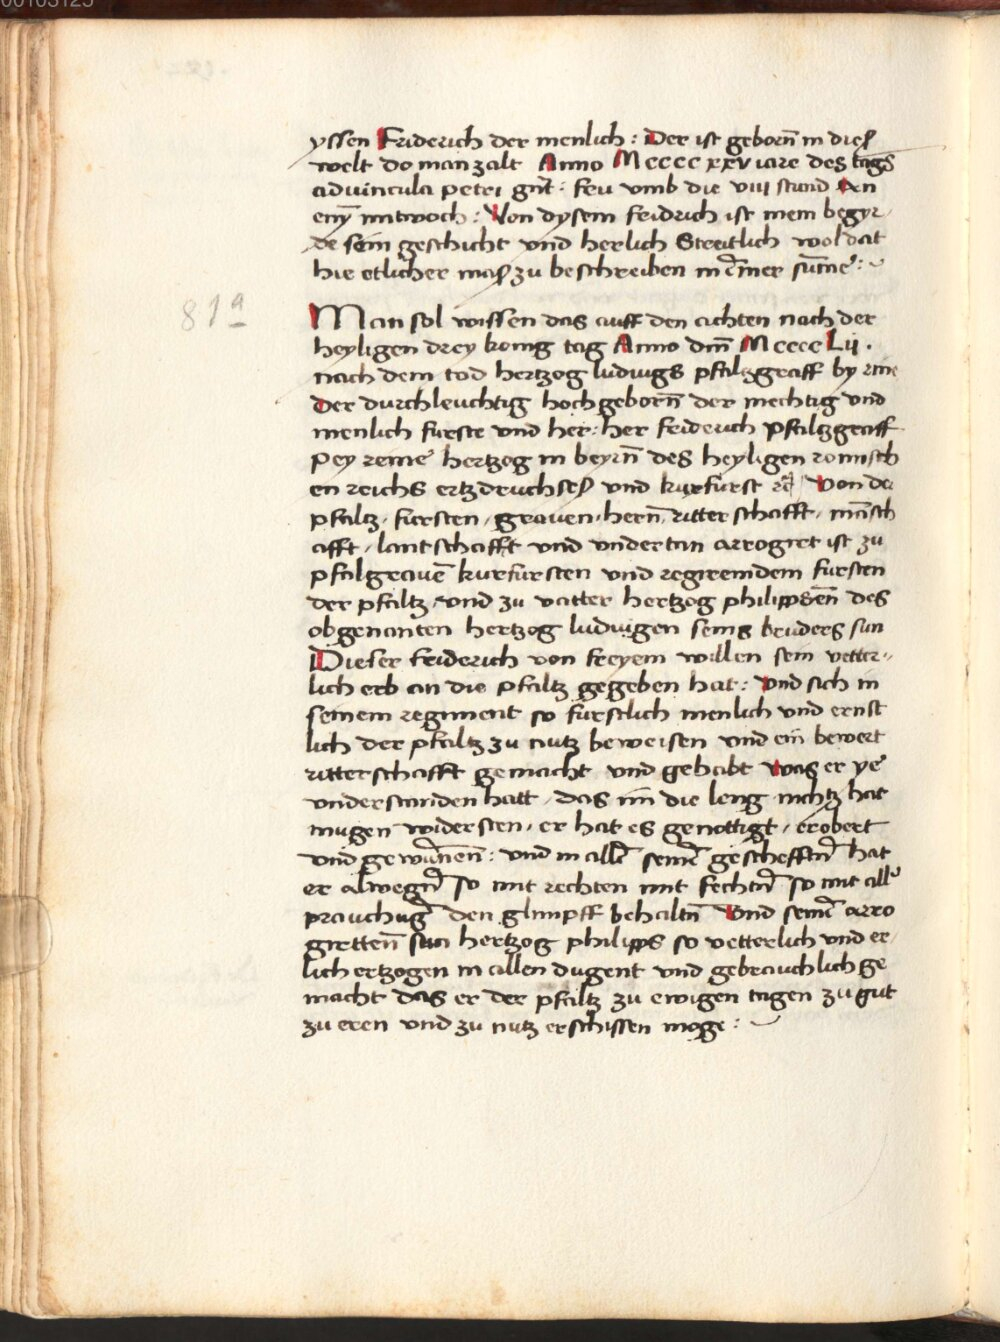 00103125
yssen Friderich der menlich : Der ist geborn̄ in dieſ
welt do man zalt Anno Mcccc xxv iare des tags
advincula petri gnt̄ : feu vmb die viii stund An
eny̅ mitwoch : Von dysem feidrich ist mein begyr-
de sein geschicht vnd herlich Streitlich woldat
hie etlicher maſ zu beschreiben in einer sum̅e :
81a
Man sol wissen das auff den achten nach der
heyligen drey konig tag Anno dm̄ Mcccc Lij .
nach dem tod hertzog ludwigs pfaltzgraff by rine
Der durchleuchtig hochgeborn̄ der mechtig vnd
menlich furste vnd her : her feiderich pfaltzgraff
pey reine hertzog in beyrn̄ des heyligen romisch
en reichs ertzdruchseſ vnd kurfurst Von der
pfaltz , fursten , graven , hern̄ , ritterschafft , ma̅sch
afft , lantschafft vnd vndertan arrogiret ist zu
pfalgrave̅ kurfursten vnd regirendem fursten
der pfaltz vnd zu vatter hertzog philippsen̄ des
obgenanten hertzog ludwigen seins bruders sun
Dieser friderich von freyem willen sein vetter-
lich erb an die pfaltz gegeben hat : Vnd sich in
seinem regiment so furstlich menlich vnd ernst
lich der pfaltz zu nutz beweisen vnd ein bewert
ritterschafft gemacht vnd gehabt was er ye
vnderstanden hatt , das im die leng nichtz hat
mugen widersten , er hat es genottigt , erobert
vnd gewu̅nen̄ : vnd in alle̅ seine̅ gescheffte̅ hat
er alwege̅ so mit rechten mit fechte̅ so mit all
den glimpff behalte̅ Vnd seine̅ arro
giretten̄ sun hertzog philipps so vetterlich vnd er-
lich ertzogen in allen dugent vnd gebrauchlich ge
macht das er der pfaltz zu ewigen tagen zu gut
zu eren vnd zu nutz erschissen moge :